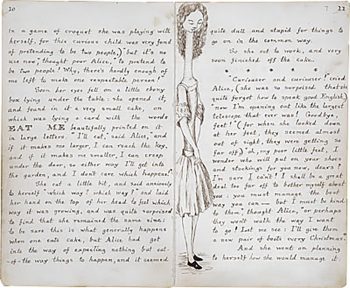 20
in a game of croquet she was playing with
herself, for this curious child was very fond
of pretending to be two people,) "but it's no
use now," thought poor Alice, "to pretend to
be two people! Why, there's hardly enough of
me left to make one respectable person!"
Soon her eyes fell on a little ebony
box lying under the table: she opened it,
and found in it a very small cake, on
which was lying a card with the words
EAT ME beautifully printed on it
in large letters. "I'll eat," said Alice, "and
if it makes me larger, I can reach the key,
and if it makes me smaller, I can creep
under the door, so either way I'll get into
the garden, and I don't care which happens!"
She eat a little bit, and said anxiously
to herself "which way? which way?" and laid
her hand on the top of her head to feel which
way it was growing, and was quite surprised
to find that she remained the same size:
to be sure this is what generally happens
when one eats cake, but Alice had got
into the way of expecting nothing but out-
of-the way things to happen, and it seemed
22
quite dull and stupid for things to
go on in the common way.
So she set to work, and very
soon finished off the cake.
* * * * *
"Curiouser and curiouser!" cried
Alice, (she was so surprised that she
quite forgot how to speak good English,)
"now I'm opening out like the largest
telescope that ever was! Goodbye,
feet!" (for when she looked down
at her feet, they seemed almost
out of sight, they were getting so
far off,) "oh, my poor little feet, I
wonder who will put on your shoes
and stockings for you now, dears?
I'm sure I can't! I shall be a great
deal too far off to bother myself about
you: you must manage the best
way you can — but I must be kind
to them," thought Alice, "or perhaps
they won't walk the way I want
to go! Let me see: I'll give them
a new pair of boots every Christmas."
And she went on planning
to herself how she would manage it